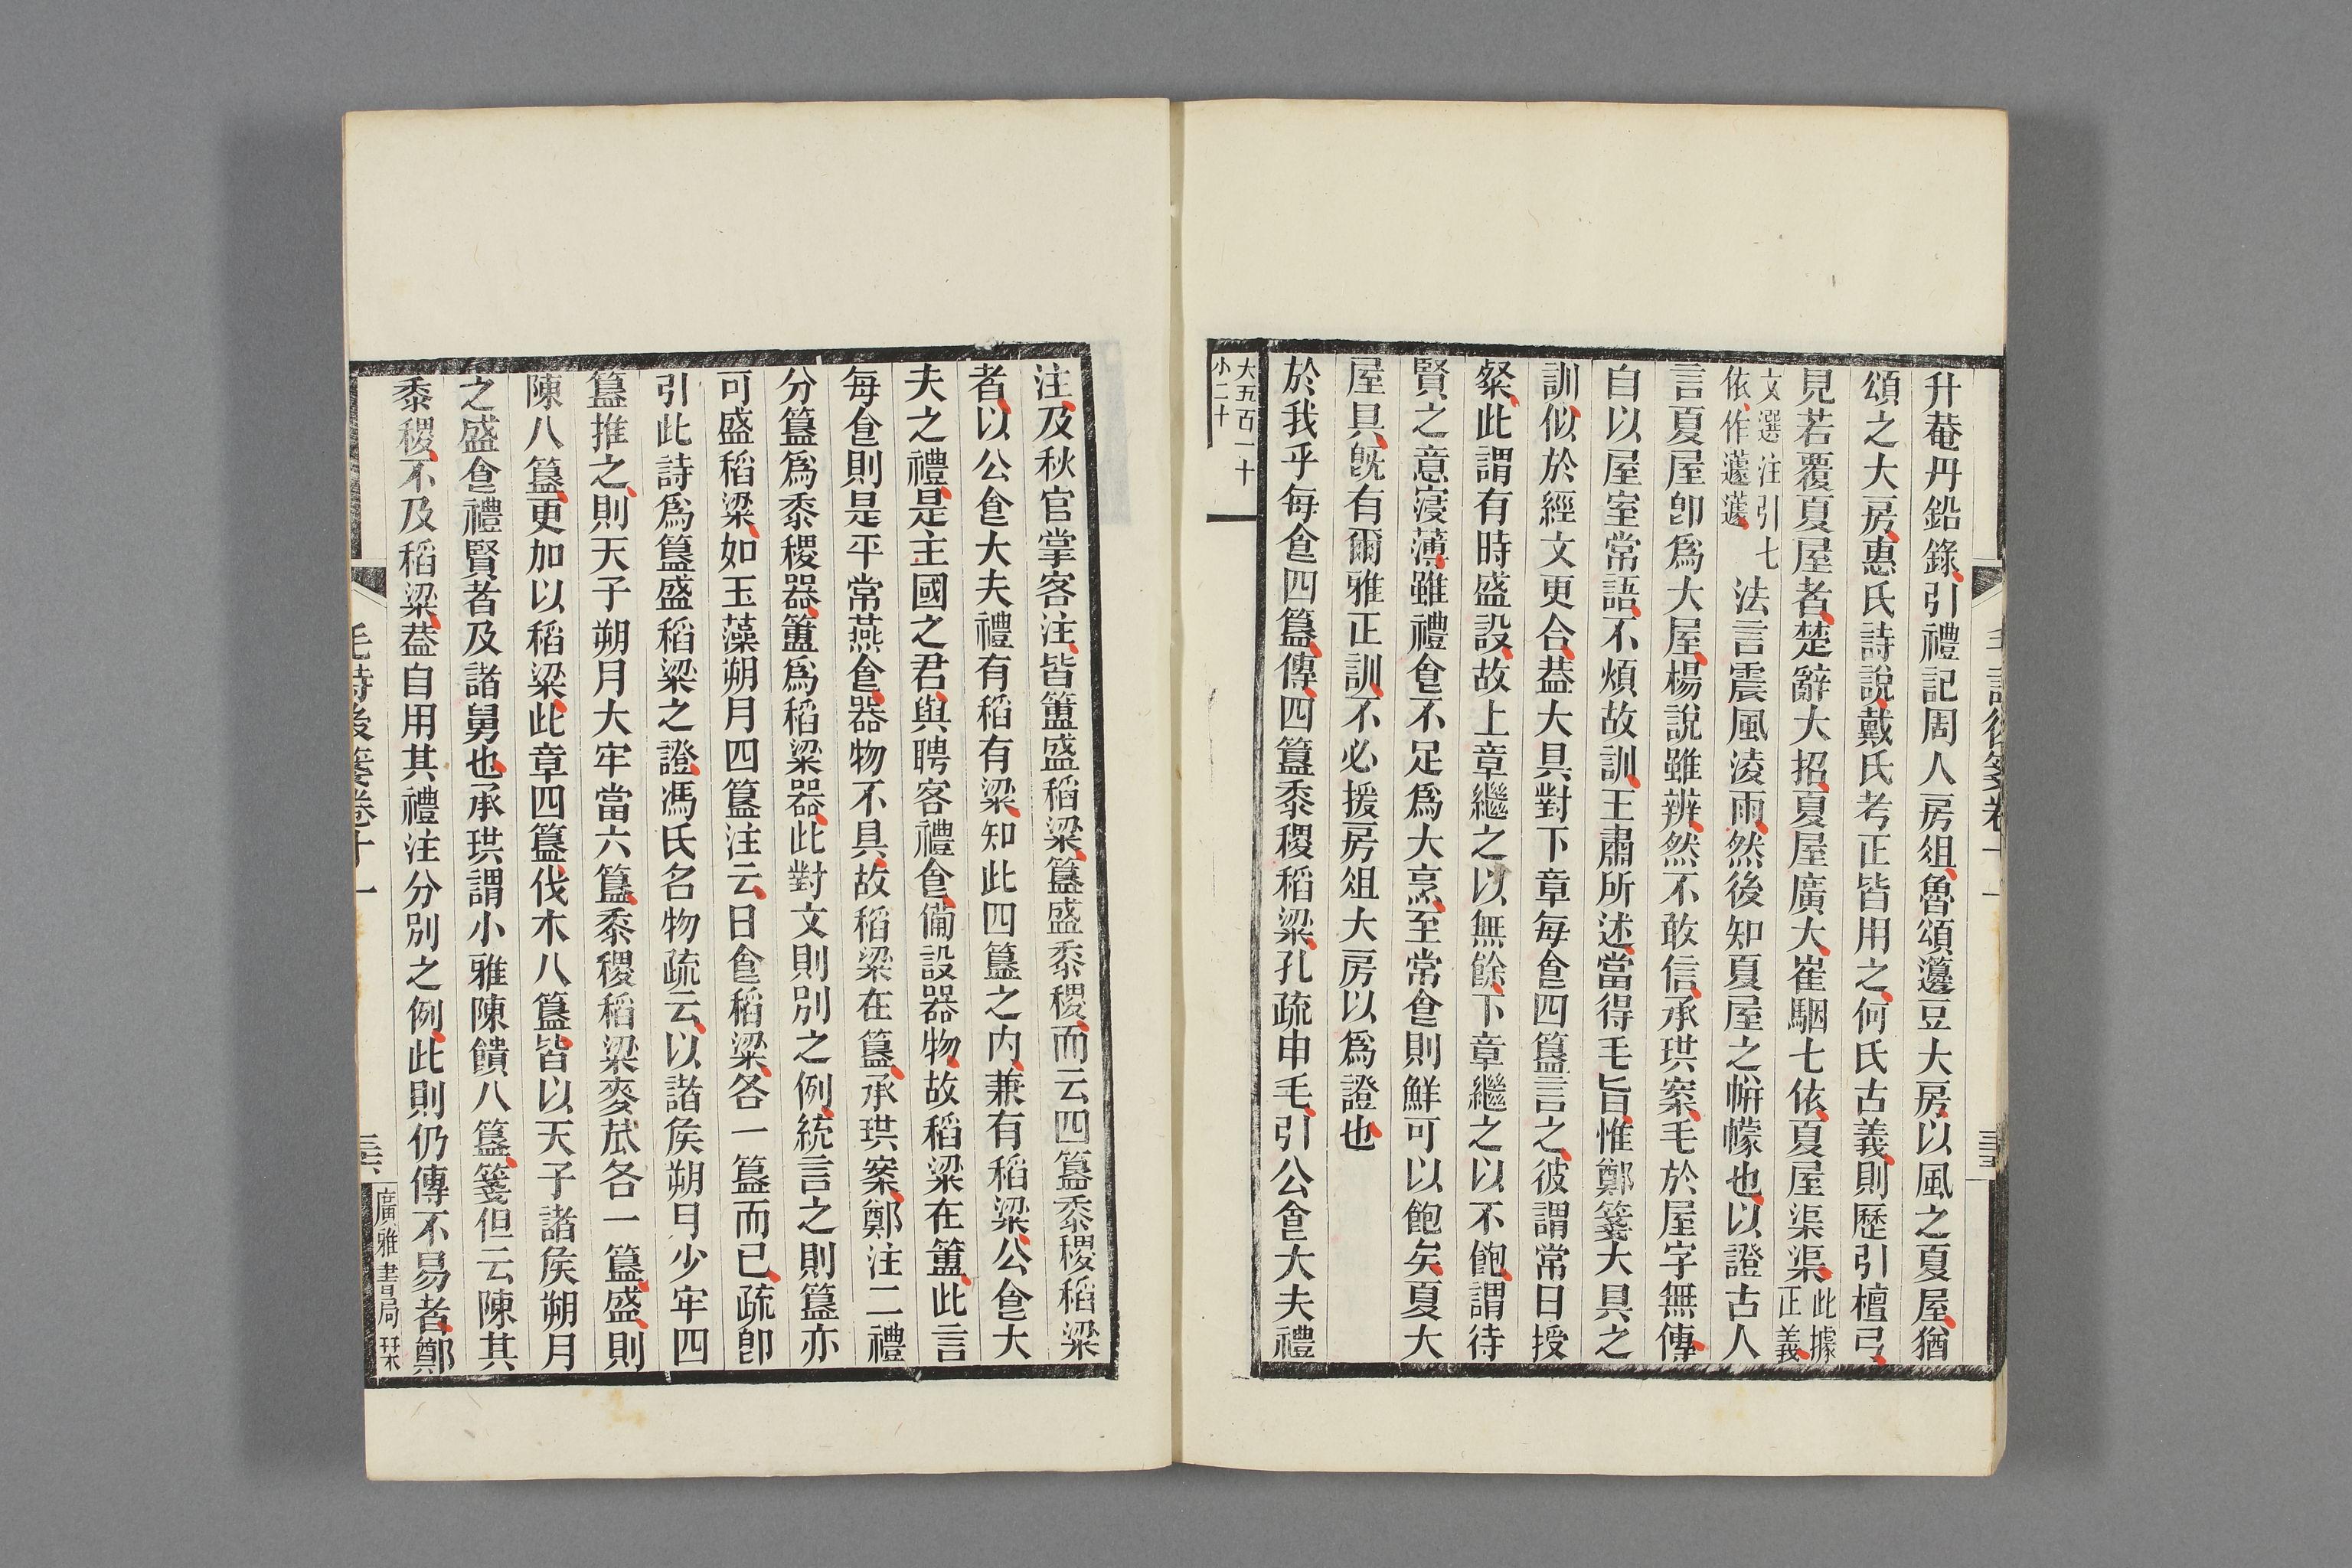 升菴丹鉛錄引禮記周人房俎魯頌籩豆大房以風之夏屋猶
頌之大房惠氏詩說戴氏考正皆用之何氏古義則歷引檀弓
見若覆夏屋者楚辭大招夏屋廣大崔駰七依夏屋渠渠此據正義
文選注引七依作蘧蘧法言震風淩雨然後知夏屋之帡幪也以證古人
言夏屋卽爲大屋楊說雖辨然不敢信承珙案毛於屋字無傳
自以屋室常語不煩故訓王肅所述當得毛旨惟鄭箋大具之
訓似於經文更合葢大具對下章每食四簋言之彼謂常日授
粲此謂有時盛設故上章繼之以無餘下章繼之以不飽謂待
賢之意寖薄雖禮食不足爲大烹至常食則鮮可以飽矣夏大
屋具旣有爾雅正訓不必援房俎大房以爲證也
於我乎每食四簋傳四簋黍稷稻粱孔疏申毛引公食大夫禮
大五百一十
小二十
注及秋官掌客注皆簠盛稻粱簋盛黍稷而云四簋黍稷稻粱
者以公食大夫禮有稻有粱知此四簋之内兼有稻粱公食大
夫之禮是主國之君與聘客禮食備設器物故稻粱在簠此言
每食則是平常燕食器物不具故稻粱在簋承珙案鄭注二禮
分簋爲黍稷器簠爲稻粱器此對文則別之例統言之則簋亦
可盛稻粱如玉藻朔月四簋注云日食稻粱各一簋而已疏卽
引此詩爲簋盛稻粱之證馮氏名物疏云以諸侯朔月少牢四
簋推之則天子朔月大牢當六簋黍稷稻粱麥苽各一簋盛則
陳八簋更加以稻粱此章四簋伐木八簋皆以天子諸侯朔月
之盛食禮賢者及諸舅也承珙謂小雅陳饋八簋箋但云陳其
黍稷不及稻粱葢自用其禮注分別之例此則仍傳不易者鄭
毛詩後箋卷十一
三六
廣雅書局栞